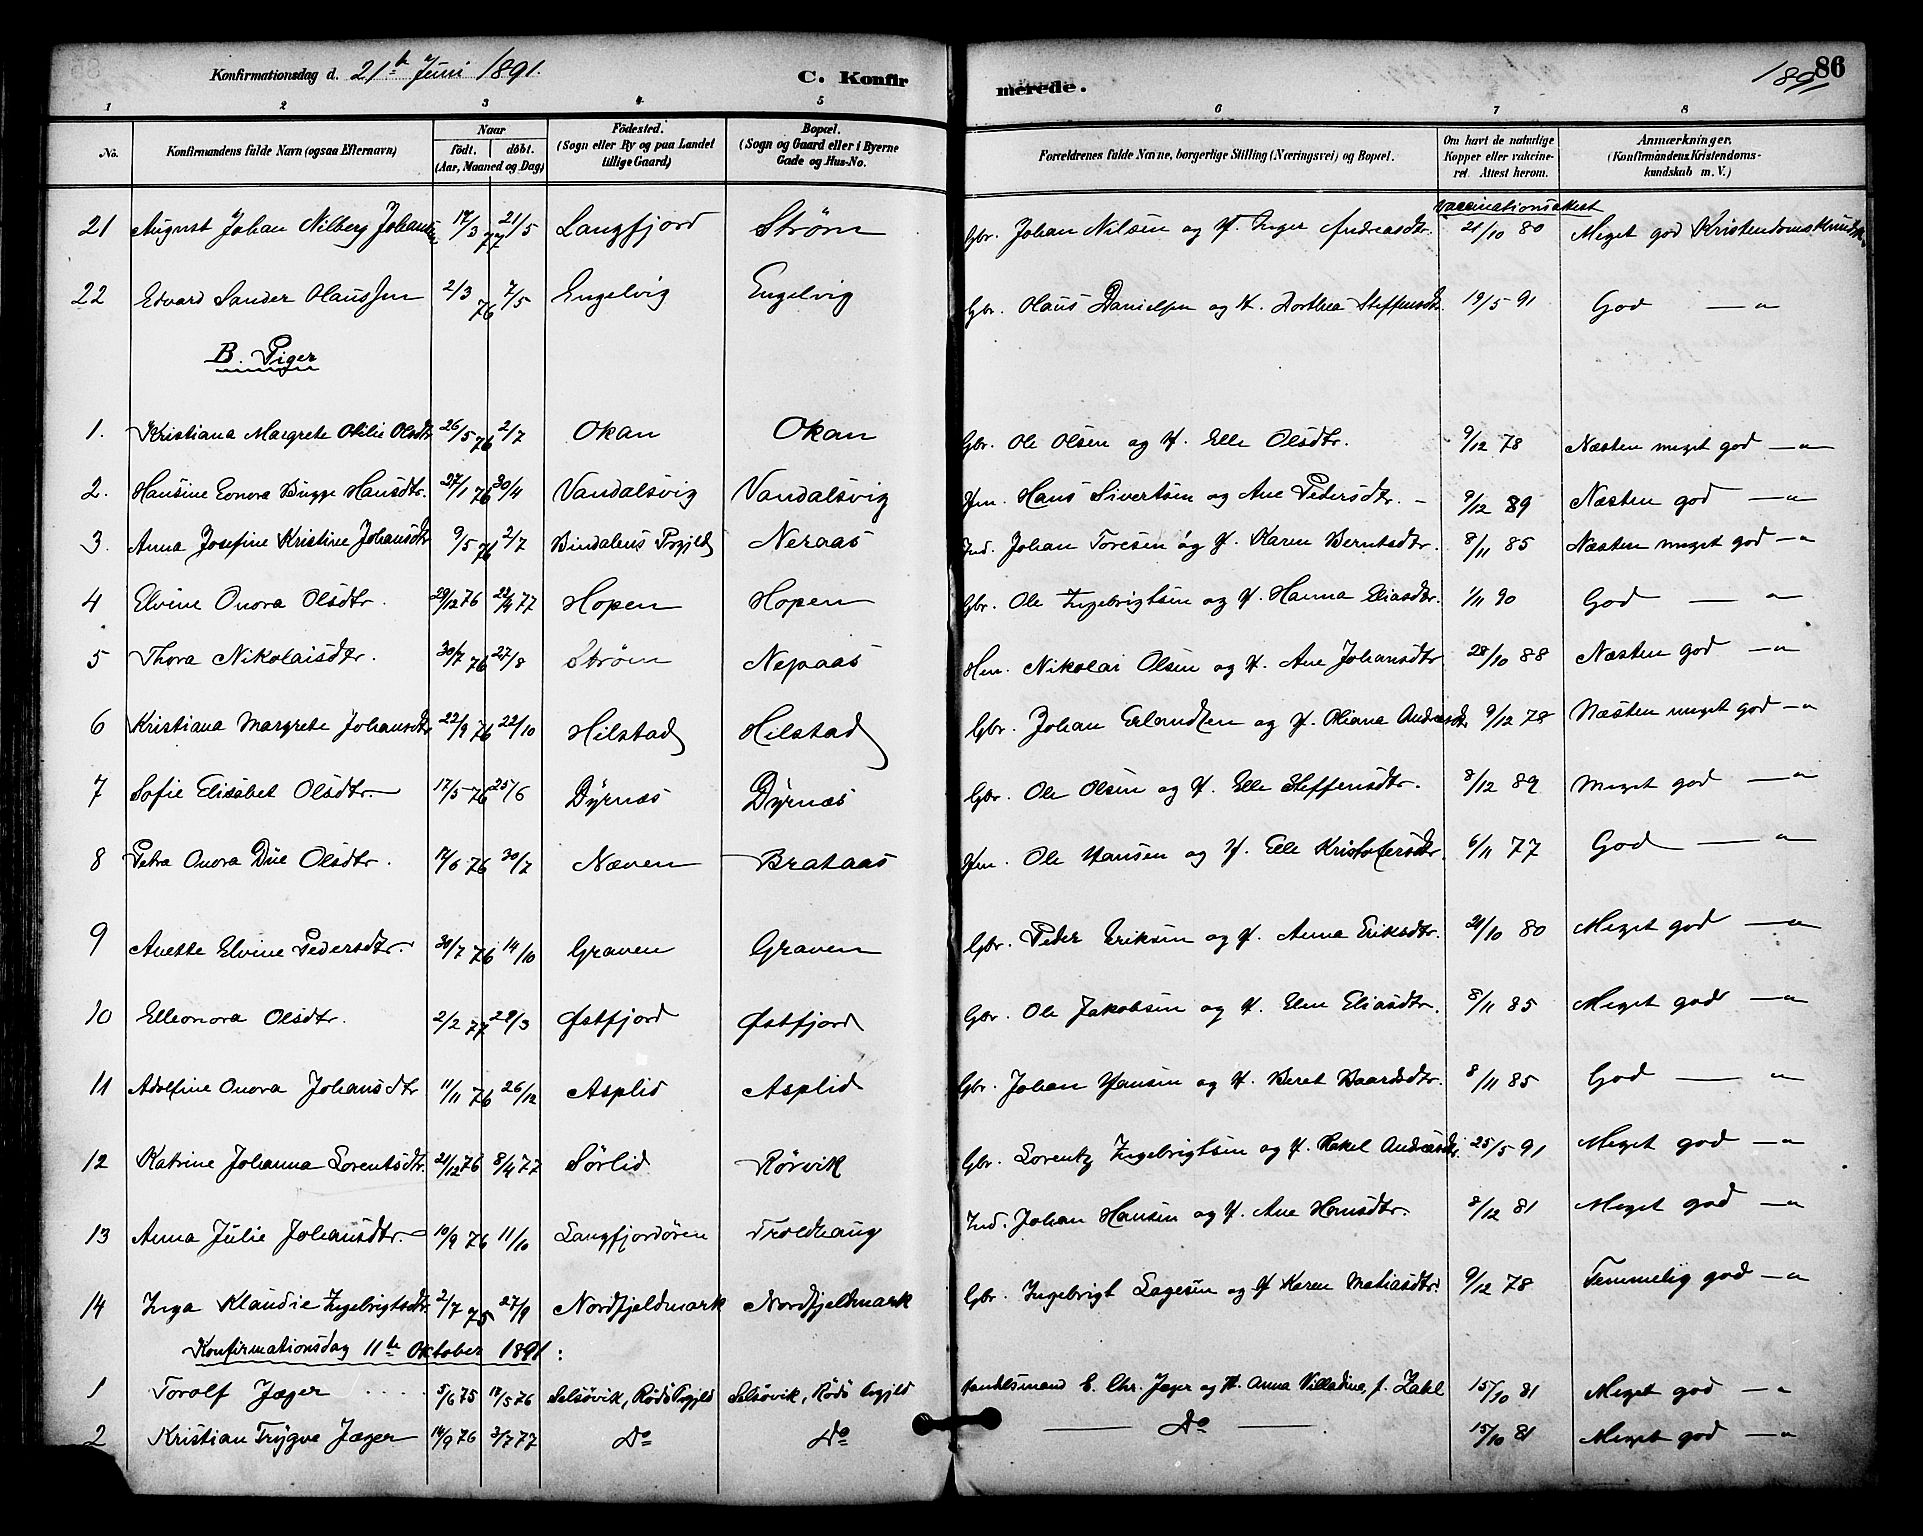 Konfirmationsdag d. 21de Juni 1891. C. Konfirmerede. 1891 86
1 2 3 4 5 6 7 8
No. Konfirmandens fulde Navn (ogsaa Efternavn) Naar födt. döbt. (Aar, Maaned og Dag) Födested. (Sogn eller By og paa Landet tillige Gaard) Bopæl. (Sogn og Gaard eller i Byerne Gade og Hus-No. Forældrenes fulde Navne, borgerlige Stilling (Næringsvei) og Bopæl. Om havt de naturlige Kopper eller vakcineret. Attest herom. Anmærkninger. (Konfirmandens Kristendomskundskab m. V.)
Vaccinationsattest
21 August Johan Nilberg Johansen 17/3 77 21/5 Langfjord Strøm Gbr. Johan Nilsen og H. Inger Andreasdtr. 21/10 80 Meget god Kristendomskundsk.
22 Edvard Sander Olaussen 2/3 76 7/5 Engelvig Engelvig Gbr. Olaus Danielsen og H. Dorthea Steffensdtr. 19/5 91 God — " —
B. Piger
1. Kristiana Margrete Otilie Olsdtr 26/5 76 2/7 Okan Okan Gbr. Ole Olsen og H. Elle Olsdtr. 9/12 78 Næsten meget god — " —
2. Hansine Eonora Bugge Hansdtr. 27/1 76 30/4 Vandalsvig Vandalsvig Hm. Hans Sivertsen og Ane Pedersdtr. 9/12 89 Næsten god — " —
3. Anna Josefine Kristine Johansdtr 9/5 76 2/7 Bindalens Prgjeld Neraas Ind. Johan Toresen og H. Karen Berntsdtr. 8/11 85 Næsten meget god — "
4 Elvine Onora Olsdtr. 29/12 76 22/4 77 Hopen Hopen Gbr. Ole Ingebrigtsen og H. Hanna Eliasdtr. 1/11 90 God — " —
5 Thora Nikolaisdtr. 30/7 76 27/8 Strøm Nepaas Hm. Nikolai Olsen og H. Ane Johansdtr 28/10 88 Næsten god — "
6 Kristiana Margrete Johansdtr 22/9 76 22/10 Hilstad Hilstad Gbr. Johan Erlandsen og H. Oliana Andreasdtr 9/12 78 Næsten meget god — "
7 Sofie Elisabet Olsdtr. 17/5 76 25/6 Dyrnæs Dyrnæs Gbr. Ole Olsen og H. Elle Steffensdtr. 8/12 89 Meget god — "
8 Petra Onora Due Olsdtr. 17/6 76 30/7 Næven Brataas Hm. Ole Hansen og H. Elle Kristofersdtr. 6/11 77 God — "
9 Anette Elvine Pedersdtr. 30/7 76 14/10 Graven Graven Gbr. Peder Eriksen og H. Anna Eriksdtr. 21/10 80 Meget god — "
10 Elleonora Olsdtr. 2/2 77 28/3 Østfjord Østfjord Gbr. Ole Jakobsen og H. Elen Eliasdtr. 8/11 85 Meget god — "
11 Adolfine Onora Johansdtr 11/11 76 26/12 Asplid Asplid Gbr. Johan Hansen og H. Beret Baardsdtr. 8/11 85 God — "
12 Katrine Johanna Lorentsdtr. 21/12 76 8/4 77 Sörlid Rörvik Gbr. Lorentz Ingebrigtsen og H. Rakel Andreasdtr. 25/5 91 Meget god — "
13 Anna Julie Johansdtr. 10/9 76 11/10 Langfjordören Troldhaug Ind. Johan Hansen og H. Ane Hansdtr. 8/12 81 Meget god — "
14 Inga Klaudie Ingebrigtsdtr 2/7 75 27/9 Nordfjeldmark Nordfjeldmark Gbr. Ingebrigt Lagesen og H Karen Matiasdtr. 9/12 78 Temmelig god — "
Konfirmationsdag 11te Oktober 1891:
1 Torolf Jæger 5/6 75 17/5 76 Selsövik, Rödö Prgjeld Selsövik, Rödö Prgjeld Handelsmand E. Chr. Jæger og H. Anna Villadine, f. Zahl 15/10 81 Meget god — "
2 Kristian Trygve Jæger 14/9 76 3/7 77 Do Do — Do — 15/10 81 Meget god — "